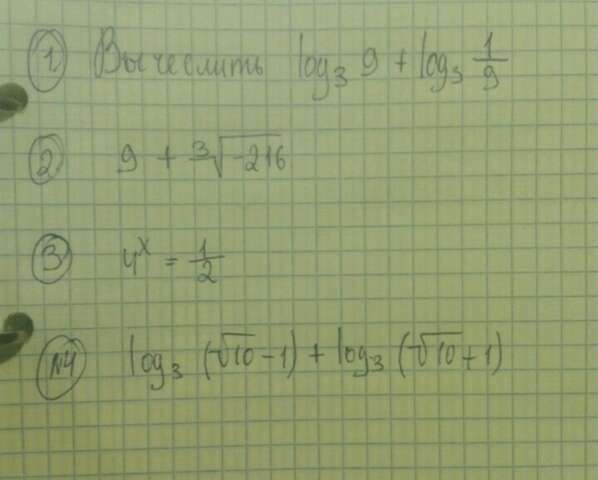 1 Вычеслить log₃ 9 + log₃ 1/9
2 9 + ³√-216
3 4ˣ = 1/2
№4 log₃ (√10 - 1) + log₃ (√10 + 1)